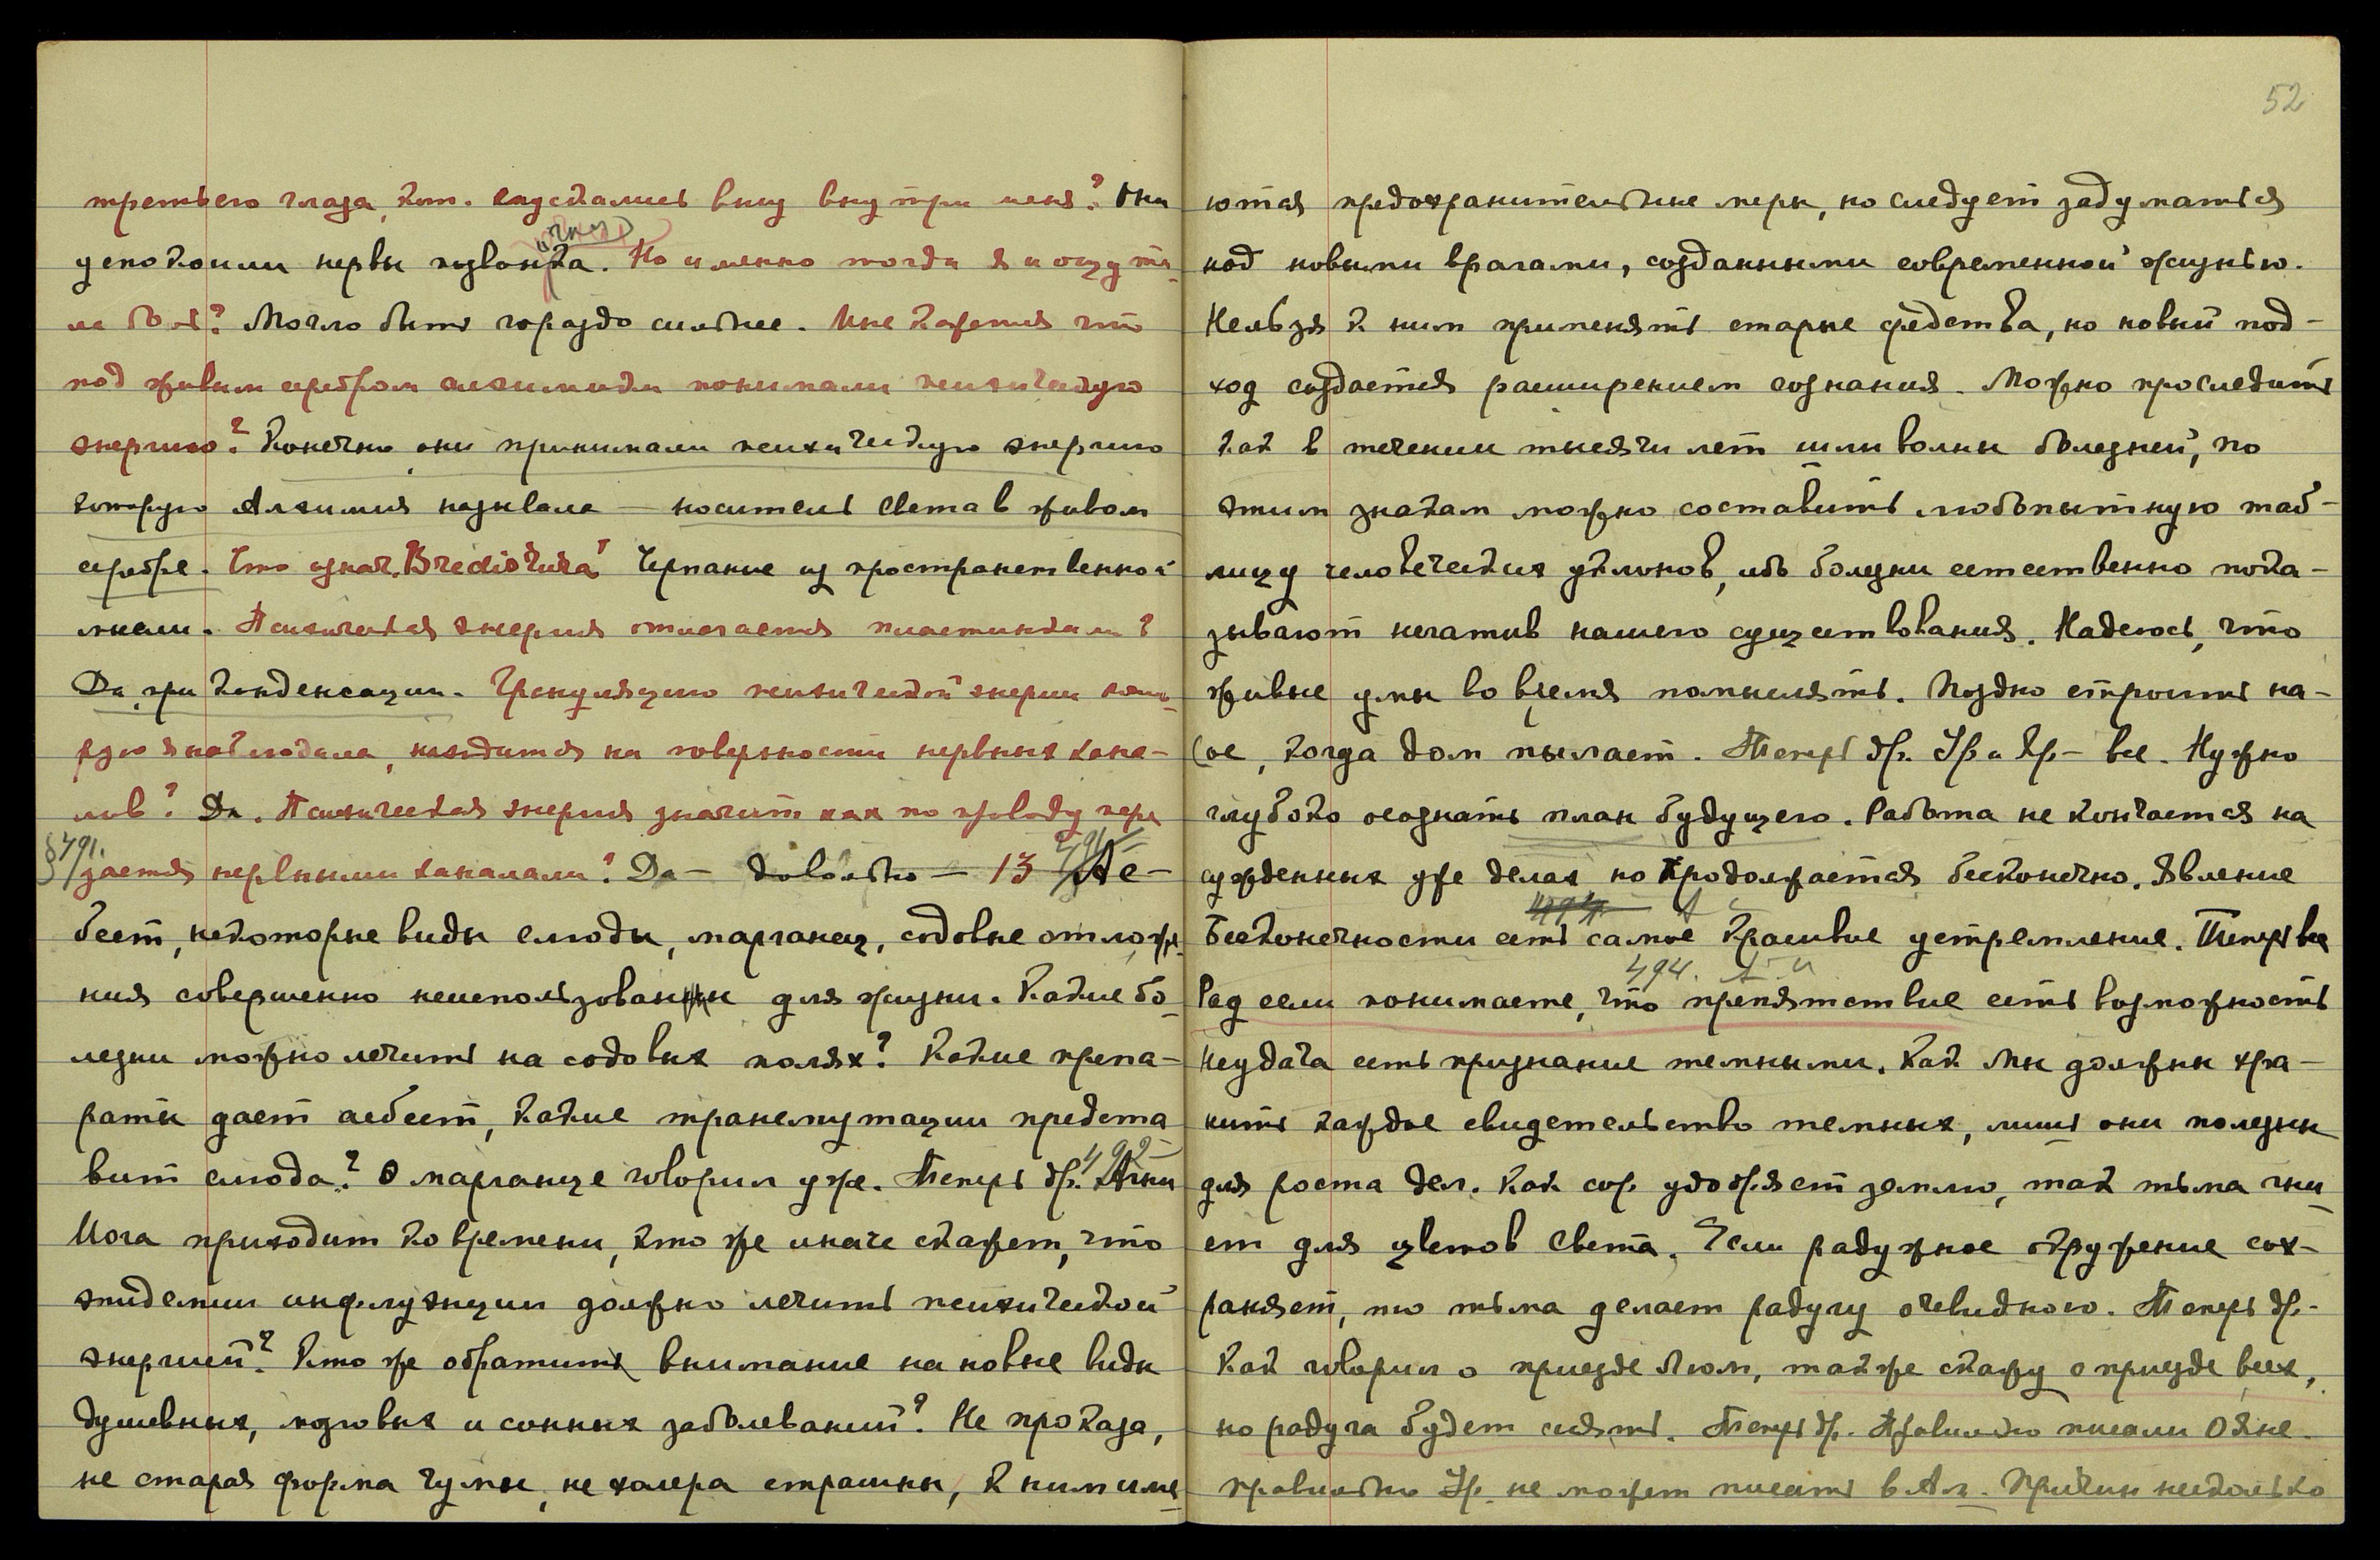 третьего глаза, кот. спускались вниз внутри меня? Они
успокоили нервы позвонка. Но именно тогда я и ощути_
ла боль? Могло быть гораздо сильнее. Мне кажется что
под живым серебром алхимики понимали психическую
энергию? Конечно, они принимали психическую энергию
которую Алхимия называла — носитель света в живом
серебре. Что означ. Черпание из пространственной
мысли. Психическая энергия отлагается пластинками?
Да, при конденсации. Грануляцию психической энергии кото_
рую я наблюдала, находится на поверхности нервных кана-
лов? Да. Психическая энергия значит как по проводу пере
§491. дается нервными каналами? Да — довольно — 13 491 Ас-
бест, некоторые виды слюды, марганец, содовые отложе_
ния совершенно неиспользованы для жизни. Какие бо_
лезни можно лечить на содовых полях? Какие препа-
раты дает асбест, какие трансмутации предста
вит слюда? О марганце говорил уже. Теперь др. 492 Агни
Йога приходит ко времени, кто же иначе скажет, что
эпидемии инфлуэнции должно лечить психической
энергией? Кто же обратит внимание на новые виды
душевных, мозговых и сонных заболеваний? Не проказа,
не старая форма чумы, не холера страшны, к ним име_
52
ются предохранительные меры, но следует задуматься
над новыми врагами, созданными современной жизнью.
Нельзя к ним применять старые средства, но новый под-
ход создается расширением сознания. Можно проследить
как в течении тысячи лет шли волны болезней, по
этим знакам можно составить любопытную таб-
лицу человеческих уклонов, ибо болезни естественно пока-
зывают негатив нашего существования. Надеюсь, что
живые умы во время помыслять. Поздно строить на-
сос, когда дом пылает. Теперь др. Ур. и Хр — все. Нужно
глубоко осознать план будущего. Работа не кончается на
суженных уже делах но продолжается бесконечно. Явление
Бесконечности есть самое красивое устремление. Теперь все
494.
Рад если понимаете, что препятствие есть возможность
Неудача есть признание темными. Как мы должны хра-
нить каждое свидетельство темных, лишь они полезны
для роста дел. Как сор удобряет землю, так тьма гни_
ет для цветов Света. Если радужное окружение сох-
раняет, то тьма делает радугу очевидною. Теперь др.-
Как говорил о приезде Люм, также скажу о приезде всех,
но радуга будет сиять. Теперь др. Правильно писали Ояне.
правильно Ур. не может писать в Ам. Причин несколько